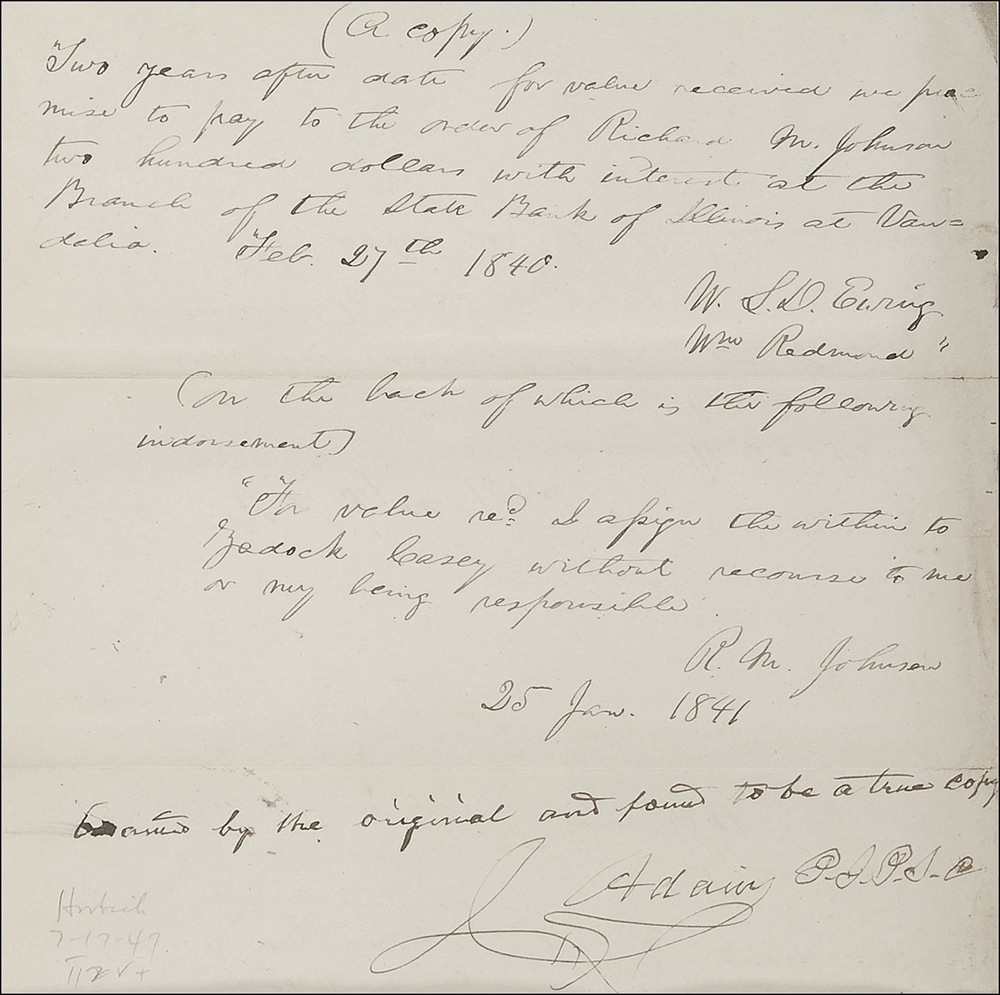 (A copy.)
"Two years after date for value received we pro
mise to pay to the order of Richard M. Johnson
two hundred dollars with interest at the
Branch of the State Bank of Illinois at Van=
dalia. Feb. 27th 1840.
W. L. D. Ewing
Wm Redmond "
(on the back of which is the following
indorsement)
"For value recd I assign the within to
Zadock Casey without recourse to me
or my being responsible
R. M. Johnson
25 Jan. 1841
by the original and found to be a true copy
J Adams P.J.P.S.C
7-17-47